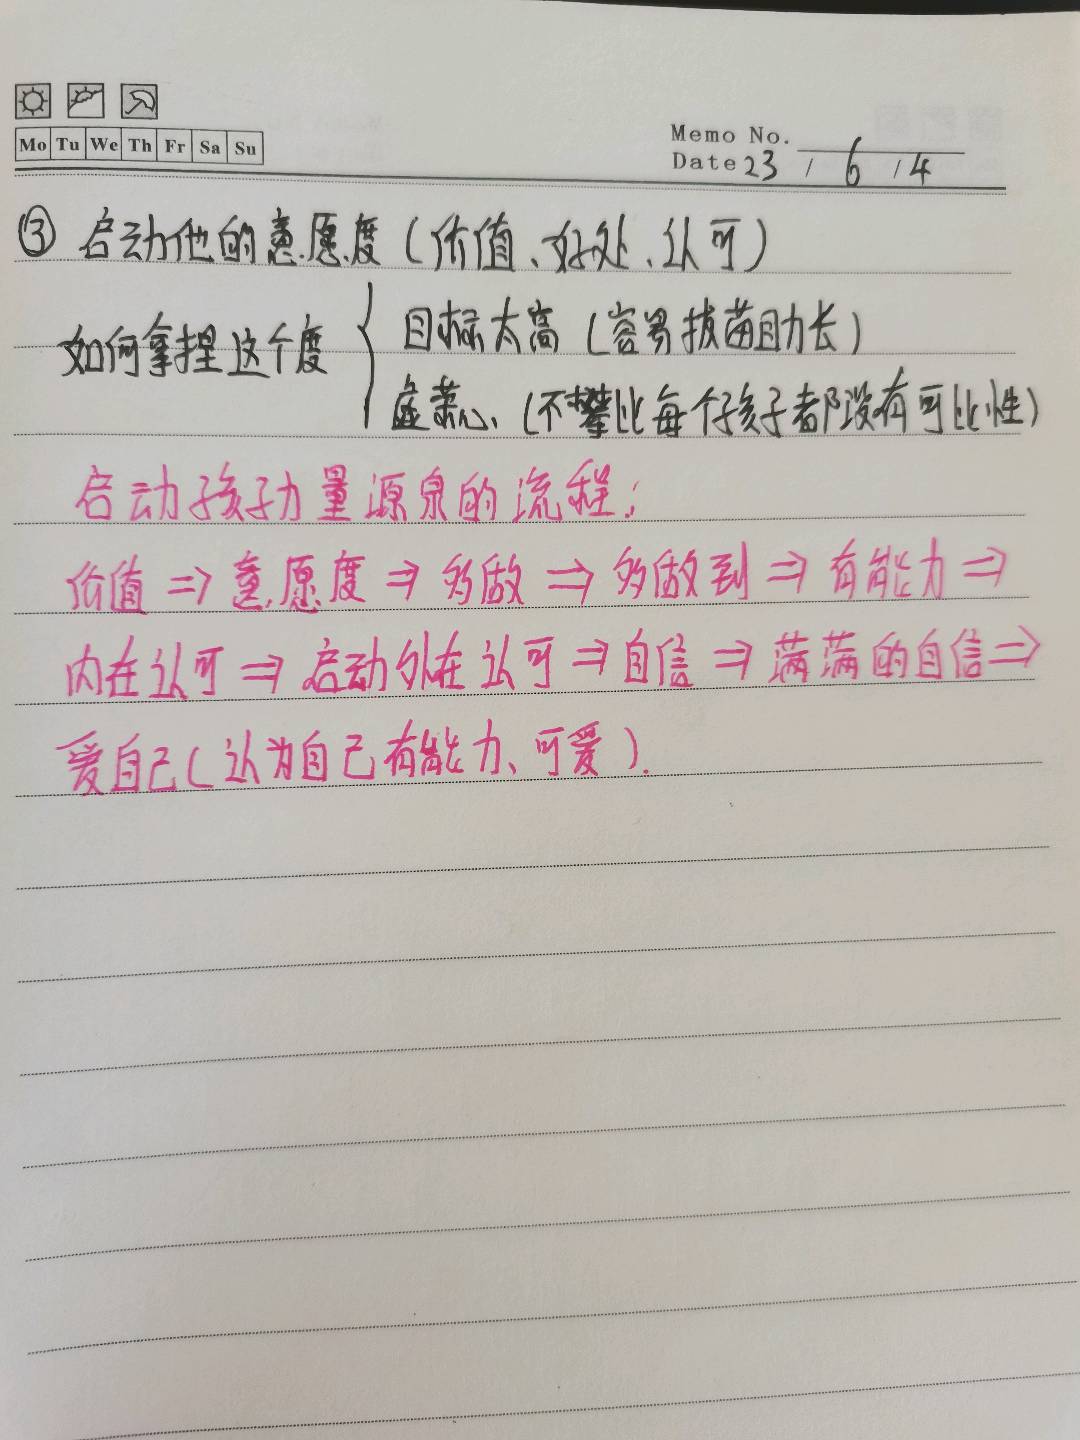 Mo Tu We Th Fr Sa Su
Memo No.
Date 23 / 6 / 4
③ 启动他的意愿度(价值、好处、认可)
如何拿捏这个度
目标太高(容易拔苗助长)
虚荣心、(不攀比每个孩子都没有可比性)
启动孩子力量源泉的流程;
价值⇒意愿度⇒多做⇒多做到⇒有能力⇒
内在认可⇒启动外在认可⇒自信⇒满满的自信⇒
爱自己(认为自己有能力、可爱).